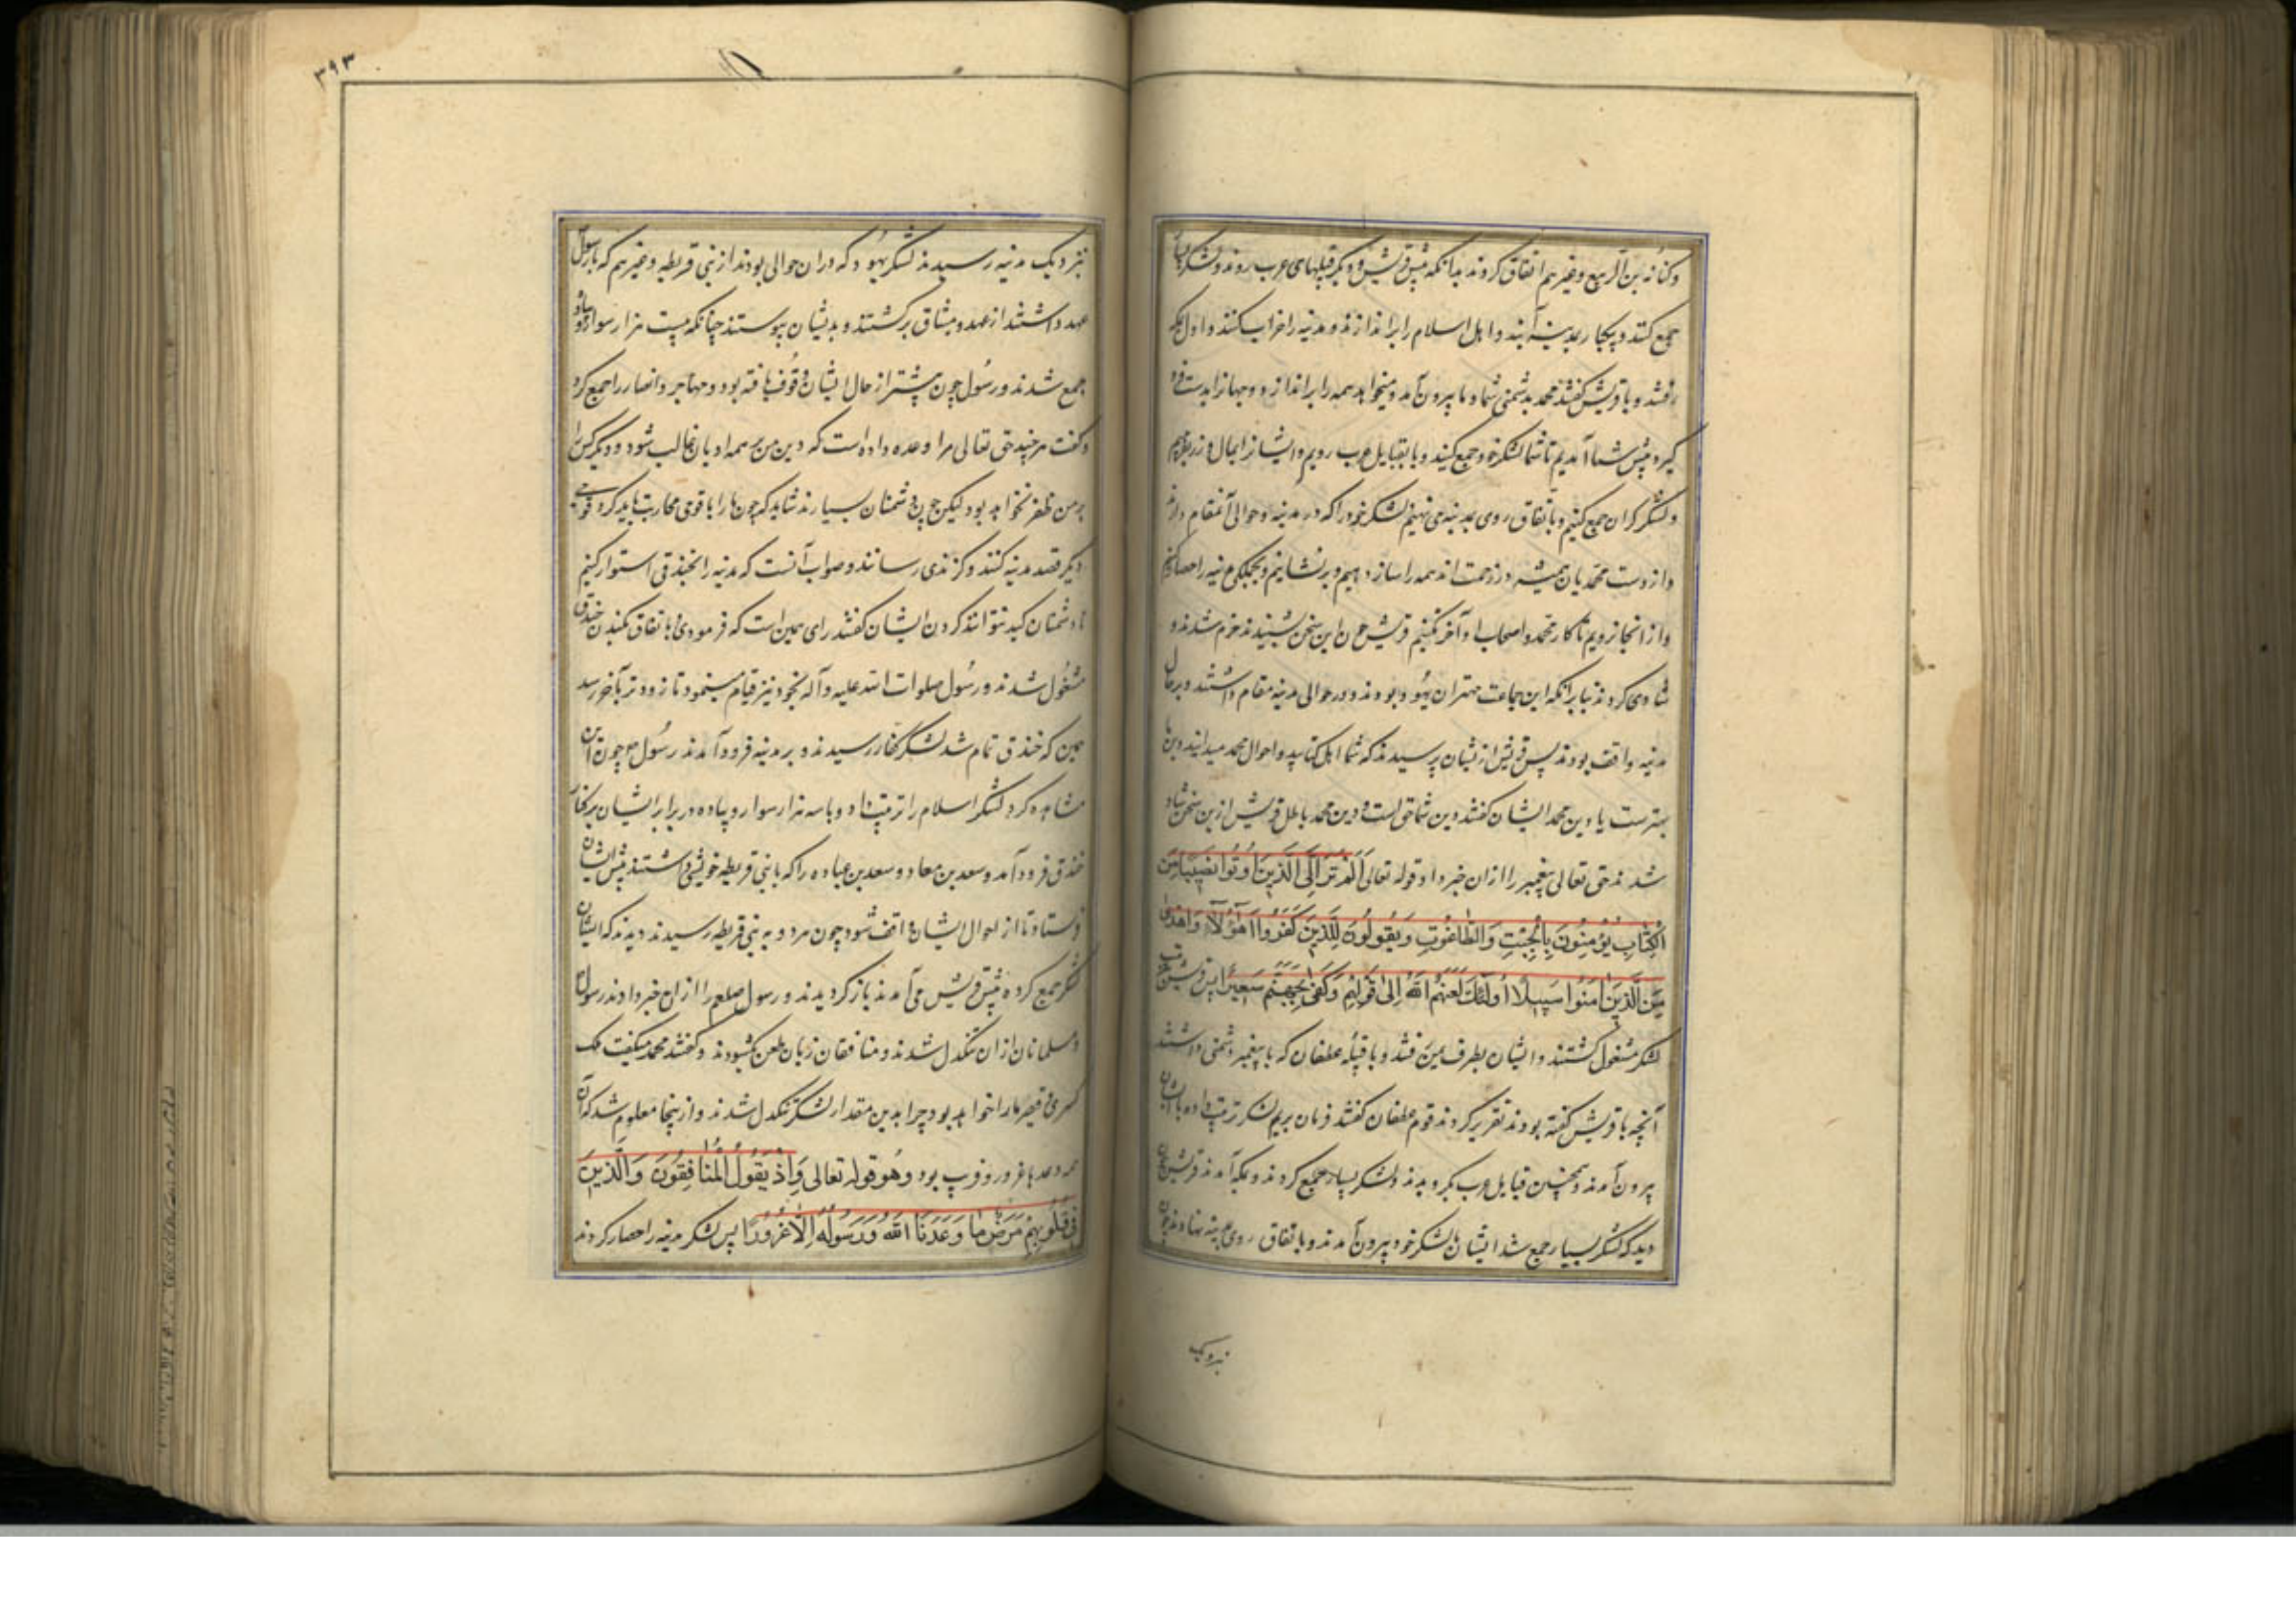 وکنانه بن الربیع وغیرهم اتفاق کردند بدانکه پیش قریش ودیگر قبیلهای عرب روند ولشکر
جمع کنند وبیکبار بمدینه آیند واهل اسلام را براندازند ومدینه را خراب کنند واول بمکه
رفتند وبا قریش گفتند محمد بدشمنی شما وما بیرون آمد ومیخواهد همه را براندازد وجهانرا بدست فرو
گیرد پیش شما آمدیم تا شما لشکر خود جمع کنید وبا بقبایل عرب رویم وایشانرا بمال وزر بفریبیم
ولشکر گران جمع کنیم وباتفاق روی بمدینه می نهیم لشکر خود را که در مدینه وحوالی آن مقام دارند
واز دست محمدیان همیشه در زحمت اند همه را ساز دهیم وبرنشانیم وبجملگی مدینه را حصار کنیم
واز انجا نرویم تا کار محمد واصحاب او آخر نکنیم قریش چون این سخن شنیدند خرم شدند و
شادی کردند بنا برانکه این جماعت مهتران یهود بودند ودر حوالی مدینه مقام داشتند وبرحال
مدینه واقف بودند پس قریش ازیشان پرسیدند که شما اهل کتابید واحوال محمد میدانید دین ما
بهترست یا دین محمد ایشان گفتند دین شما حق است ودین محمد باطل قریش ازین سخن شاد
شدند حق تعالی پیغمبر را ازان خبر داد قوله تعالی اَلَمْ تَرَ اِلَی الَّذینَ اُوتُوا نَصیبًا مِنَ
الْکِتابِ یُؤْمِنُونَ بِالْجِبْتِ وَالطّاغُوتِ وَیَقُولُونَ لِلَّذینَ کَفَرُوا هٰؤُلآءِ اَهْدٰی
مِنَ الَّذینَ اٰمَنُوا سَبیلًا اُولٰئِکَ لَعَنَهُمُ اللّٰهُ اِلیٰ قَوْلِهِ وَکَفیٰ بِجَهَنَّمَ سَعیرًا پس قریش بترتیب
لشکر مشغول گشتند وایشان بطرف یمن رفتند وبا قبیله غطفان که با پیغمبر دشمنی داشتند
آنچه با قریش گفته بودند تقریر کردند قوم غطفان گفتند فرمان بریم لشکر ترتیب داده باایشان
بیرون آمدند وهمچنین قبایل عرب بگرویدند ولشکر بسیار جمع کردند وبمکه آمدند قریش چون
دید که لشکر بسیار جمع شد ایشان با لشکر خود بیرون آمدند وباتفاق روی بمدینه نهادند چون
نزدیک
٣٩٣
نزدیک مدینه رسیدند لشکر یهود که دران حوالی بودند از بنی قریظه وغیرهم که با رسول
عهد داشتند از عهد ومیثاق برگشتند وبدیشان پیوستند چنانکه بیست هزار سوار وپیاده
جمع شدند ورسول چون پیشتر از حال ایشان وقوف یافته بود ومهاجر وانصار را جمع کرد
وگفت هرچند حق تعالی مرا وعده داده است که دین من بر همه ادیان غالب شود ودیگر کس را
بر من ظفر نخواهد بود لیکن چون دشمنان بسیارند شاید که چون ما را با قومی محاربت باید کرد قومی
دیگر قصد مدینه کنند وگزندی رسانند وصواب آنست که مدینه را بخندقی استوار کنیم
تا دشمنان کید نتوانند کردن ایشان گفتند رای همین است که فرمودی باتفاق بکندن خندق
مشغول شدند ورسول صلوات الله علیه وآله بخود نیز قیام مینمود تا زودتر بآخر رسد
همین که خندق تمام شد لشکر کفار رسیدند وبر مدینه فرود آمدند رسول چون آن
مشاهده کرد لشکر اسلام را ترتیب داد وبا سه هزار سوار وپیاده در برابر ایشان برکنار
خندق فرود آمد وسعد بن معاد وسعد بن عباده را که با بنی قریظه خویشی داشتند پیش ایشان
فرستاد تا از احوال ایشان واقف شود چون هر دو به بنی قریظه رسیدند دیدند که ایشان
لشکر جمع کرده پیش قریش می آمدند باز گردیدند ورسول صلعم را ازان خبر دادند رسول
ومسلمانان ازان تنگدل شدند ومنافقان زبان بطعن بگشودند وگفتند محمد میگفت ملک
کسری وقیصر ما را خواهد بود چرا بدین مقدار لشکر تنگدل شدند وازینجا معلوم شد که آن
همه وعدها غرور وفریب بود وهو قوله تعالی وَاِذْ یَقُولُ الْمُنافِقُونَ وَالَّذینَ
فی قُلُوبِهِمْ مَرَضٌ ما وَعَدَنَا اللّٰهُ وَرَسُولُهُ اِلّا غُرُورًا پس لشکر مدینه را حصار کردند